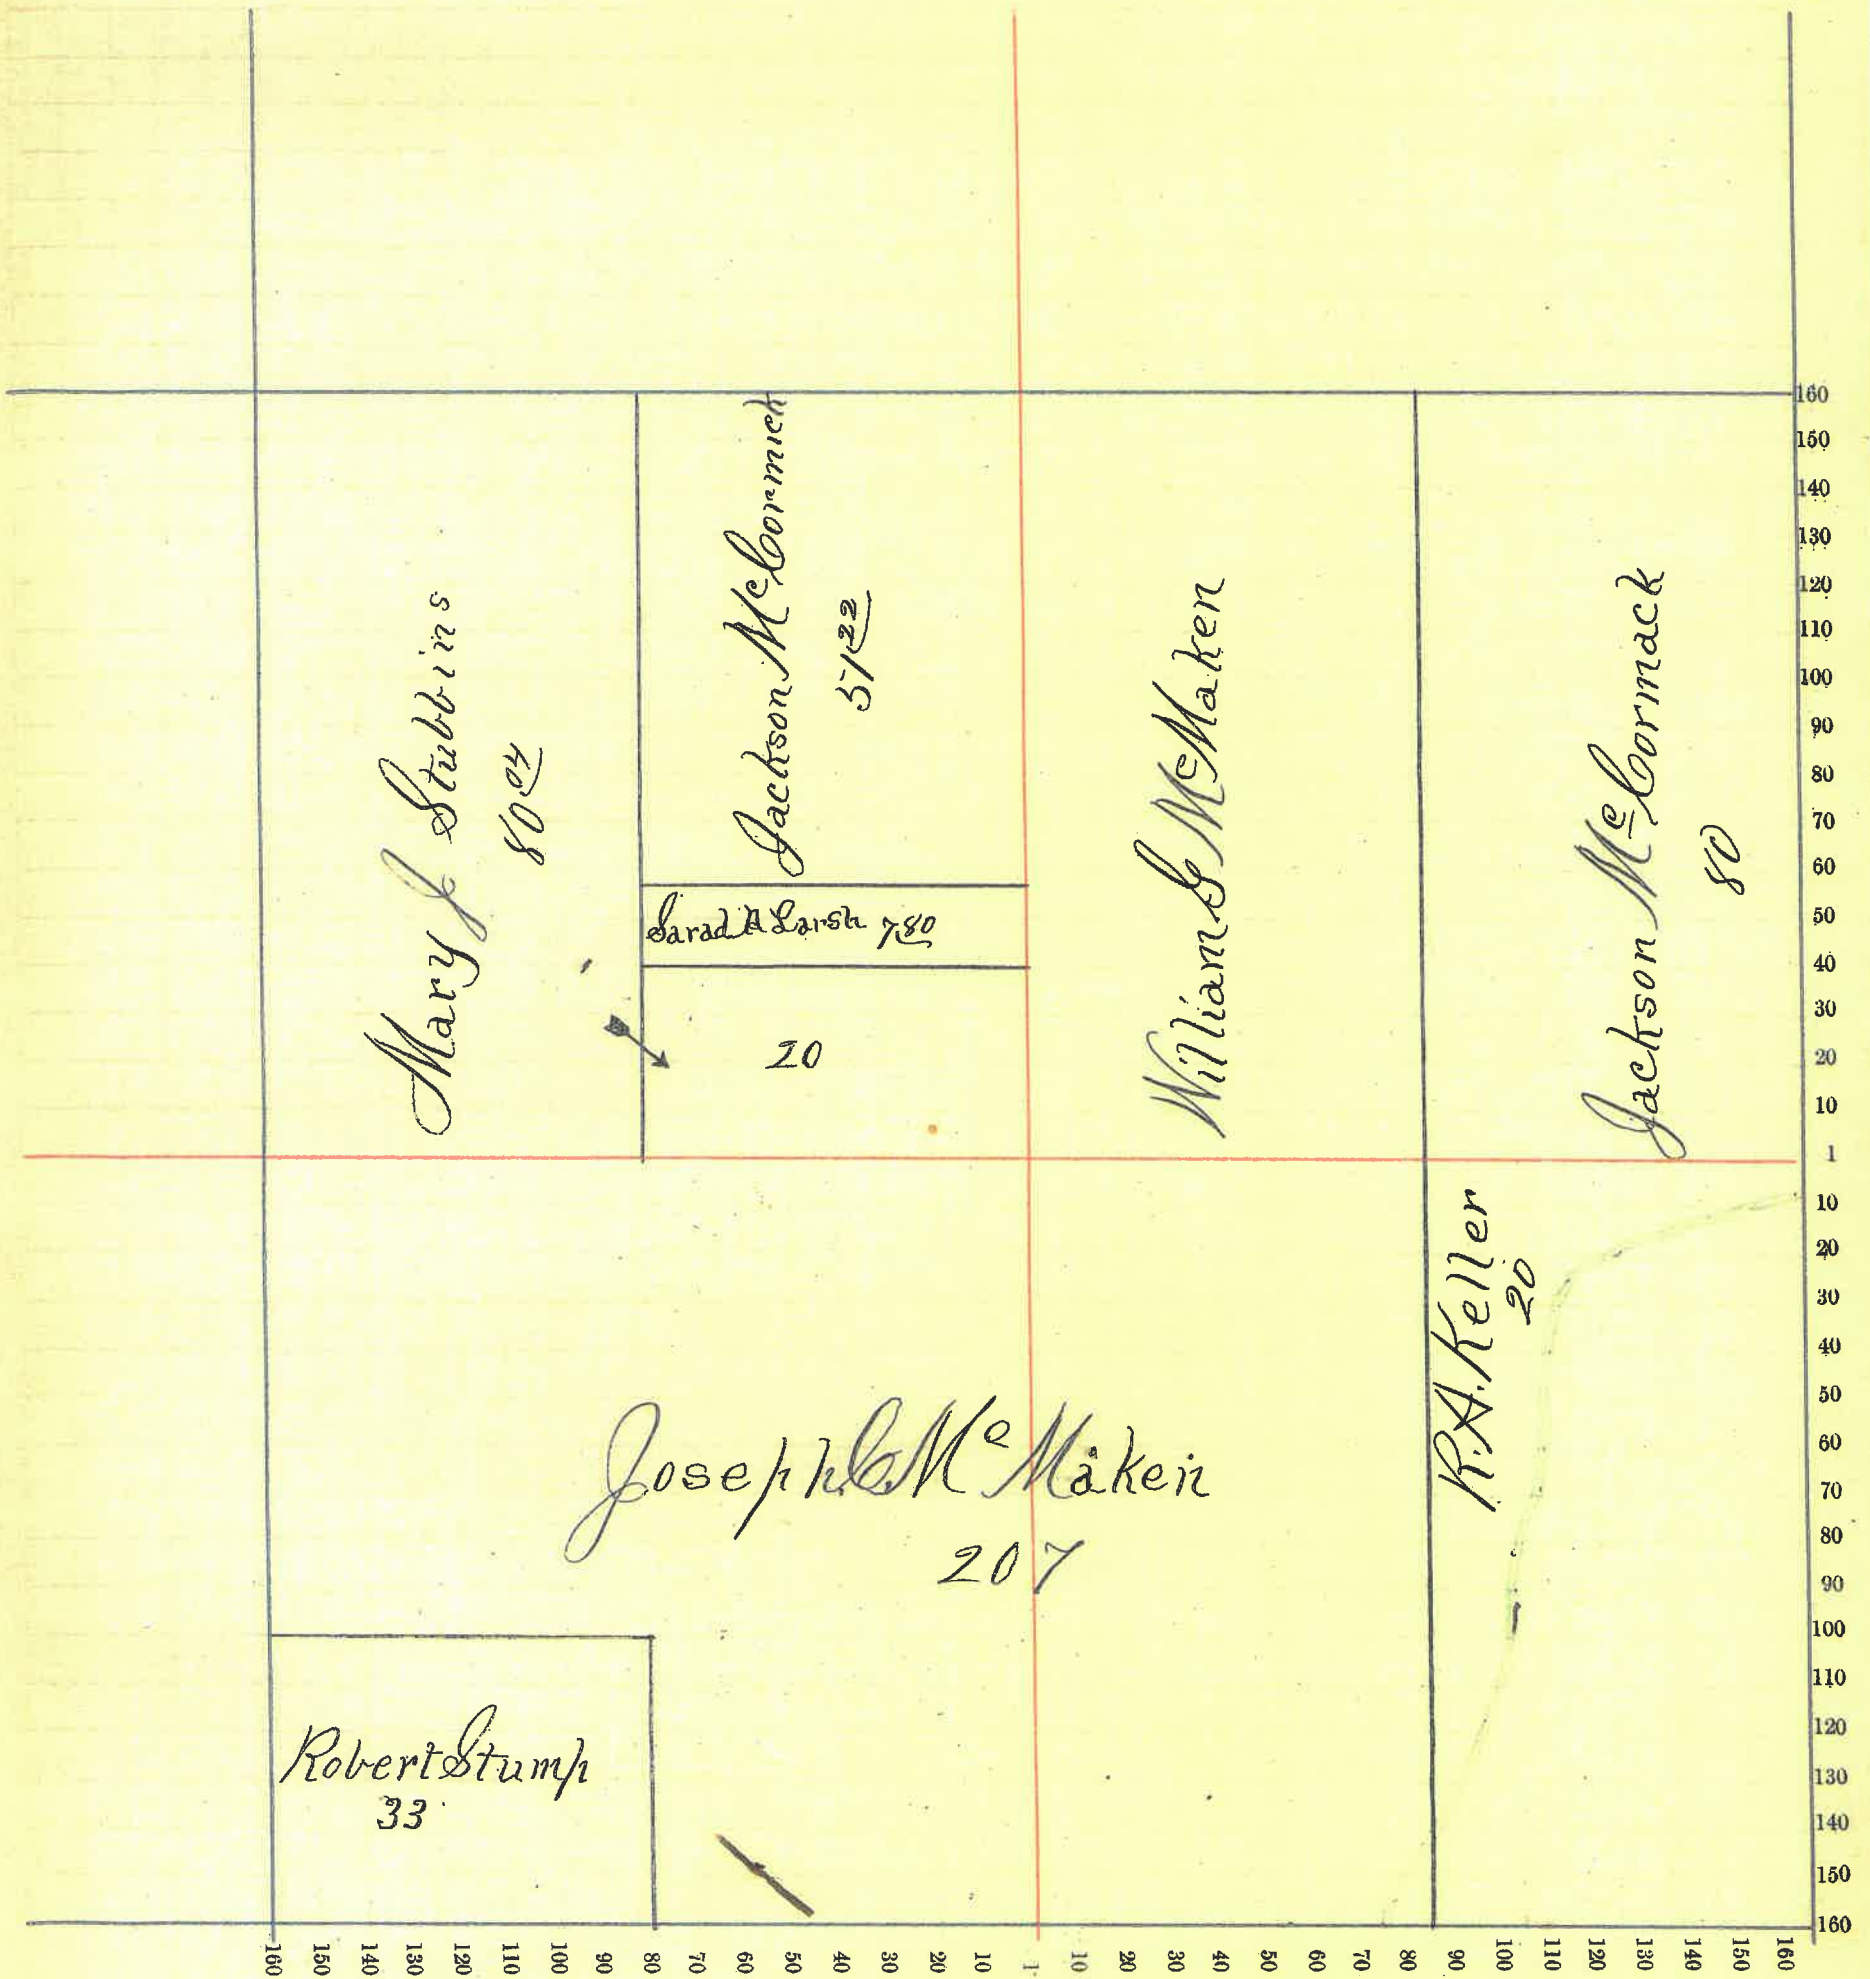 Mary J Stubbins
80 04
Jackson McCormick
51 22
Sarad A Larsh 7 80
20
William G McMaken
Jackson McCormack
80
R.A. Keller
20
Joseph C McMaken
207
Robert Stump
33
160
150
140
130
120
110
100
90
80
70
60
50
40
30
20
10
1
10
20
30
40
50
60
70
80
90
100
110
120
130
140
150
160
160
150
140
130
120
110
100
90
80
70
60
50
40
30
20
10
1
10
20
30
40
50
60
70
80
90
100
110
120
130
140
150
160